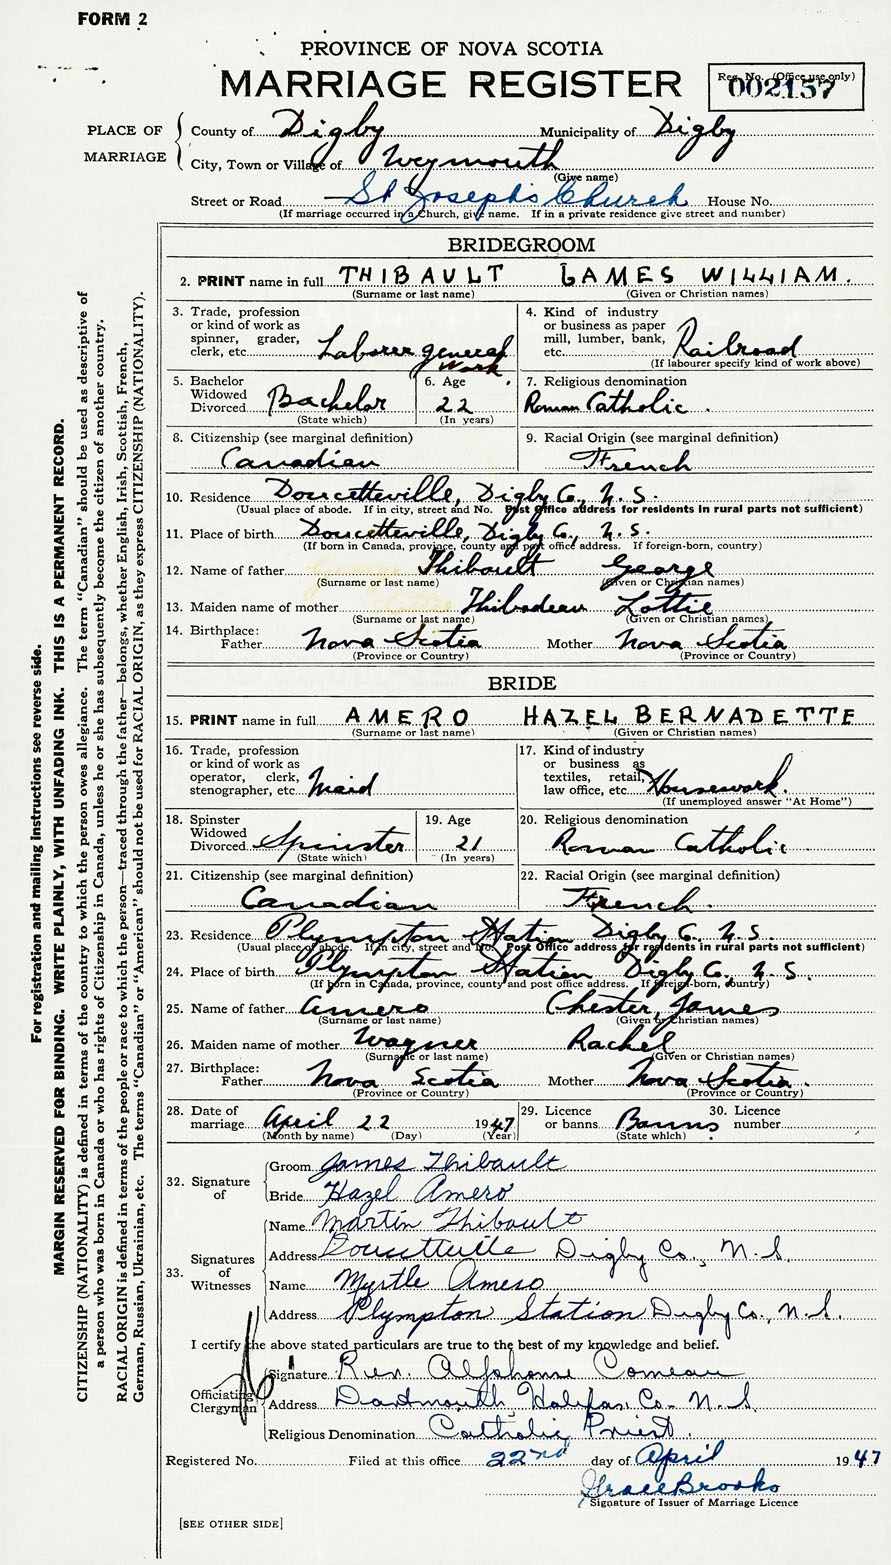 FORM 2
PROVINCE OF NOVA SCOTIA
MARRIAGE REGISTER
Reg. No. (Office use only)
002157
PLACE OF MARRIAGE
County of Digby Municipality of Digby
City, Town or Village of Weymouth
(Give name)
Street or Road St Joseph's Church House No.
(If marriage occurred in a Church, give name. If in a private residence give street and number)
BRIDEGROOM
2. PRINT name in full THIBAULT JAMES WILLIAM.
(Surname or last name) (Given or Christian names)
3. Trade, profession or kind of work as spinner, grader, clerk, etc. Laborer general work
4. Kind of industry or business as paper mill, lumber, bank, etc. Railroad
(If labourer specify kind of work above)
5. Bachelor Widowed Divorced Bachelor
(State which)
6. Age 22
(In years)
7. Religious denomination Roman Catholic.
8. Citizenship (see marginal definition) Canadian
9. Racial Origin (see marginal definition) French
10. Residence Doucetteville, Digby Co., N.S.
(Usual place of abode. If in city, street and No. Post Office address for residents in rural parts not sufficient)
11. Place of birth Doucetteville, Digby Co., N.S.
(If born in Canada, province, county and post office address. If foreign-born, country)
12. Name of father Thibault George
(Surname or last name) (Given or Christian names)
13. Maiden name of mother Thibodeau Lottie
(Surname or last name) (Given or Christian names)
14. Birthplace: Father Nova Scotia Mother Nova Scotia
(Province or Country) (Province or Country)
BRIDE
15. PRINT name in full AMERO HAZEL BERNADETTE
(Surname or last name) (Given or Christian names)
16. Trade, profession or kind of work as operator, clerk, stenographer, etc. Maid
17. Kind of industry or business as textiles, retail, law office, etc. Housework.
(If unemployed answer "At Home")
18. Spinster Widowed Divorced Spinster
(State which)
19. Age 21
(In years)
20. Religious denomination Roman Catholic
21. Citizenship (see marginal definition) Canadian
22. Racial Origin (see marginal definition) French.
23. Residence Plympton Station Digby Co., N.S.
(Usual place of abode. If in city, street and No. Post Office address for residents in rural parts not sufficient)
24. Place of birth Plympton Station Digby Co., N.S.
(If born in Canada, province, county and post office address. If foreign-born, country)
25. Name of father Amero Chester James
(Surname or last name) (Given or Christian names)
26. Maiden name of mother Wagner Rachel
(Surname or last name) (Given or Christian names)
27. Birthplace: Father Nova Scotia Mother Nova Scotia.
(Province or Country) (Province or Country)
28. Date of marriage April 22 1947
(Month by name) (Day) (Year)
29. Licence or banns Banns
(State which)
30. Licence number
32. Signature of
Groom James Thibault
Bride Hazel Amero
33. Signatures of Witnesses
Name Martin Thibault
Address Doucetteville Digby Co., N.S.
Name Myrtle Amero
Address Plympton Station Digby Co., N.S.
I certify the above stated particulars are true to the best of my knowledge and belief.
Officiating Clergyman
Signature Rev. Alphonse Comeau
Address Dartmouth Halifax Co. N.S.
Religious Denomination Catholic Priest.
Registered No. Filed at this office 22nd day of April 1947
Grace Brooks
Signature of Issuer of Marriage Licence
[SEE OTHER SIDE]
For registration and mailing instructions see reverse side.
MARGIN RESERVED FOR BINDING. WRITE PLAINLY, WITH UNFADING INK. THIS IS A PERMANENT RECORD.
CITIZENSHIP (NATIONALITY) is defined in terms of the country to which the person owes allegiance. The term "Canadian" should be used as descriptive of
a person who was born in Canada or who has rights of Citizenship in Canada, unless he or she has subsequently become the citizen of another country.
RACIAL ORIGIN is defined in terms of the people or race to which the person—traced through the father—belongs, whether English, Irish, Scottish, French,
German, Russian, Ukrainian, etc. The terms "Canadian" or "American" should not be used for RACIAL ORIGIN, as they express CITIZENSHIP (NATIONALITY).